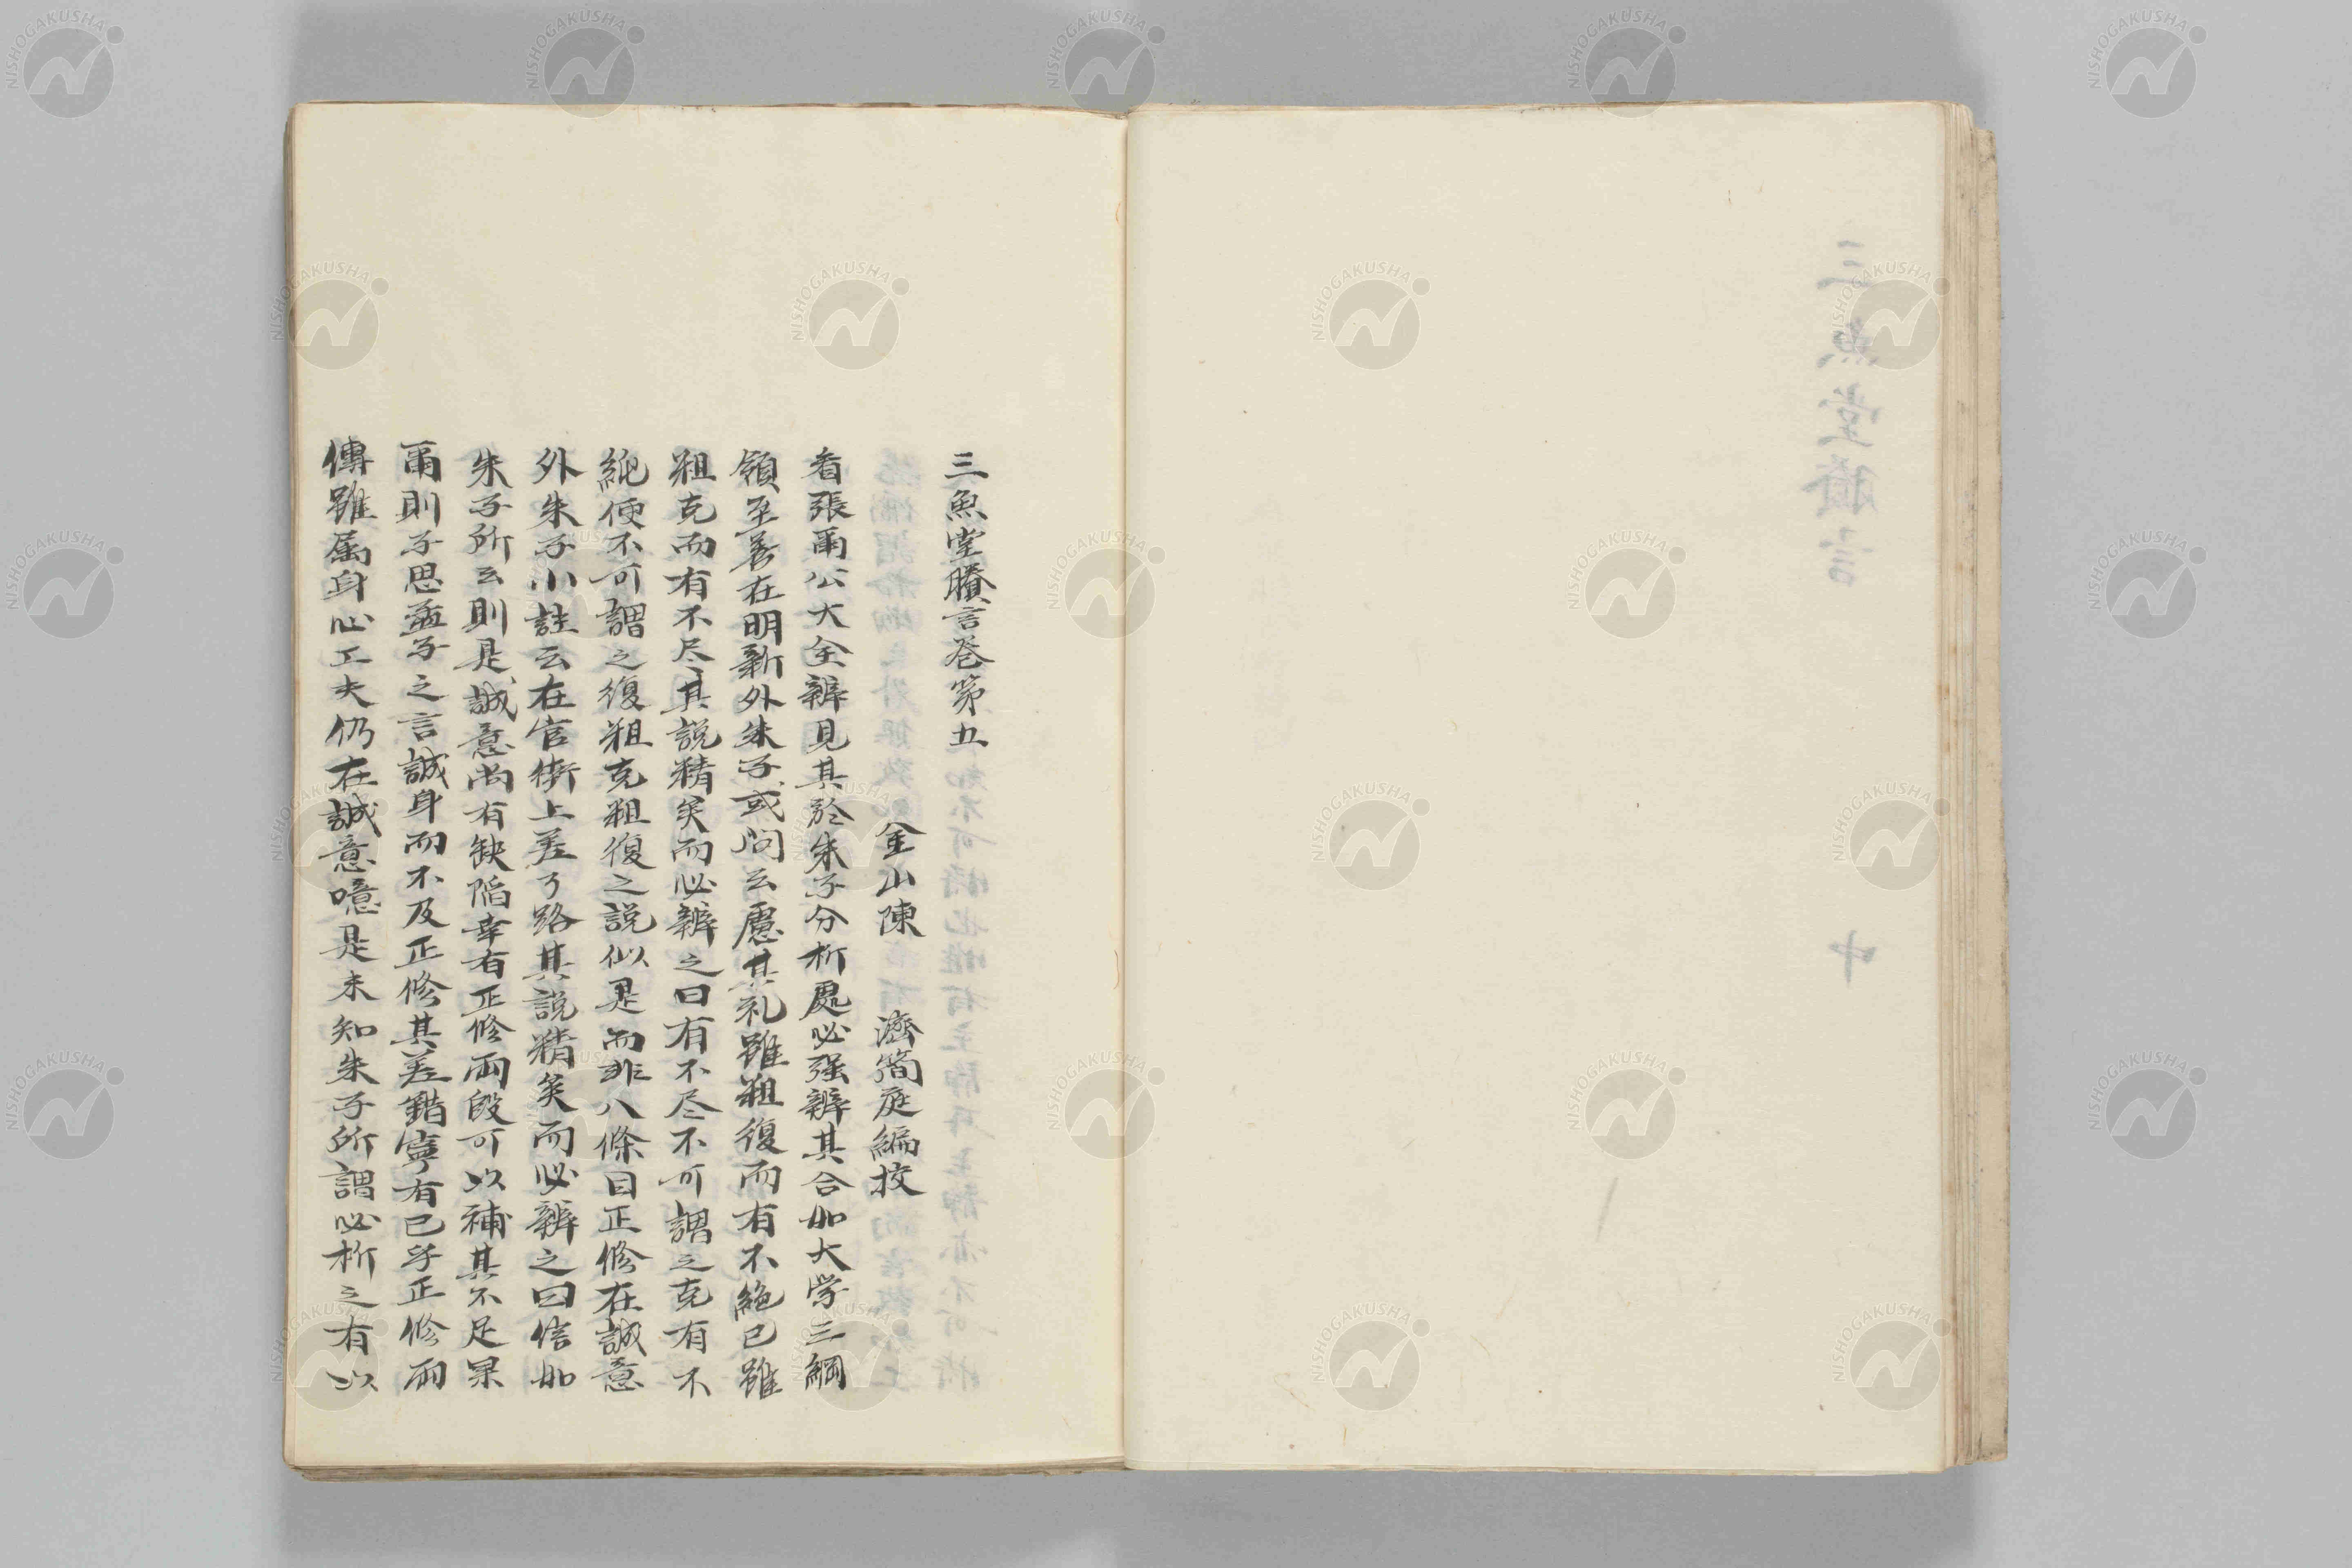 三魚堂賸言巻第五
金山陳　濟簡庭編挍
看張甬公大全辨見其於朱子分析處必强辨其合如大学三綱
領至善在明新外朱子或问云慮其礼雖粗復而有不絶已雖
粗克而有不尽其説精矣而必辨之曰有不尽不可謂之克有不
純便不可謂之復粗克粗復之説似是而非八條目正修在誠意
外朱子小註云在官街上差了路其説精矣而必辨之曰信如
朱子所云則是誠意尚有缺陷幸有正修両段可以補其不足果
爾則子思孟子之言誠身而不及正修其差錯寧有已乎正修両
傳雖属身心工夫仍在誠意噫是未知朱子所謂必析之有以
三魚堂賸言
中
NISHOGAKUSHA